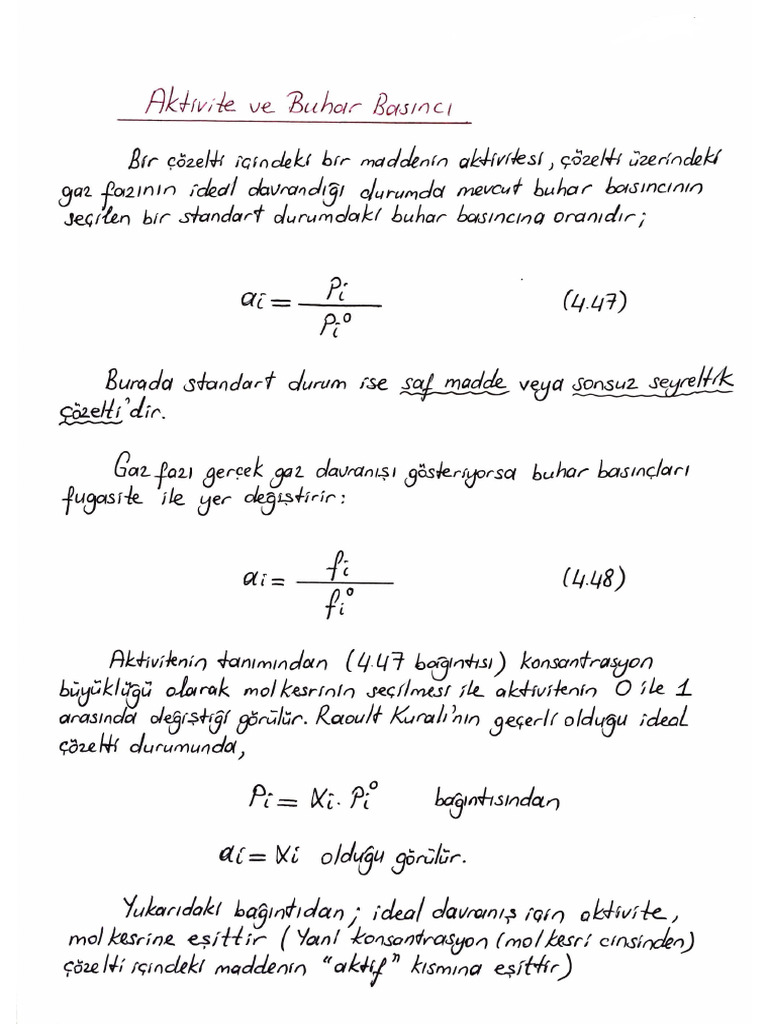 Aktivite ve Buhar Basıncı
Bir çözelti içindeki bir maddenin aktivitesi, çözelti üzerindeki
gaz fazının ideal davrandığı durumda mevcut buhar basıncının
seçilen bir standart durumdaki buhar basıncına oranıdır;
ai = Pi / Pi° (4.47)
Burada standart durum ise saf madde veya sonsuz seyreltik
çözelti'dir.
Gaz fazı gerçek gaz davranışı gösteriyorsa buhar basınçları
fugasite ile yer değiştirir:
ai = fi / fi° (4.48)
Aktivitenin tanımından (4.47 bağıntısı) konsantrasyon
büyüklüğü olarak mol kesrinin seçilmesi ile aktivitenin 0 ile 1
arasında değiştiği görülür. Raoult Kuralı'nın geçerli olduğu ideal
çözelti durumunda,
Pi = Xi. Pi° bağıntısından
ai = Xi olduğu görülür.
Yukarıdaki bağıntıdan; ideal davranış için aktivite,
mol kesrine eşittir (Yani konsantrasyon (mol kesri cinsinden)
çözelti içindeki maddenin "aktif" kısmına eşittir)